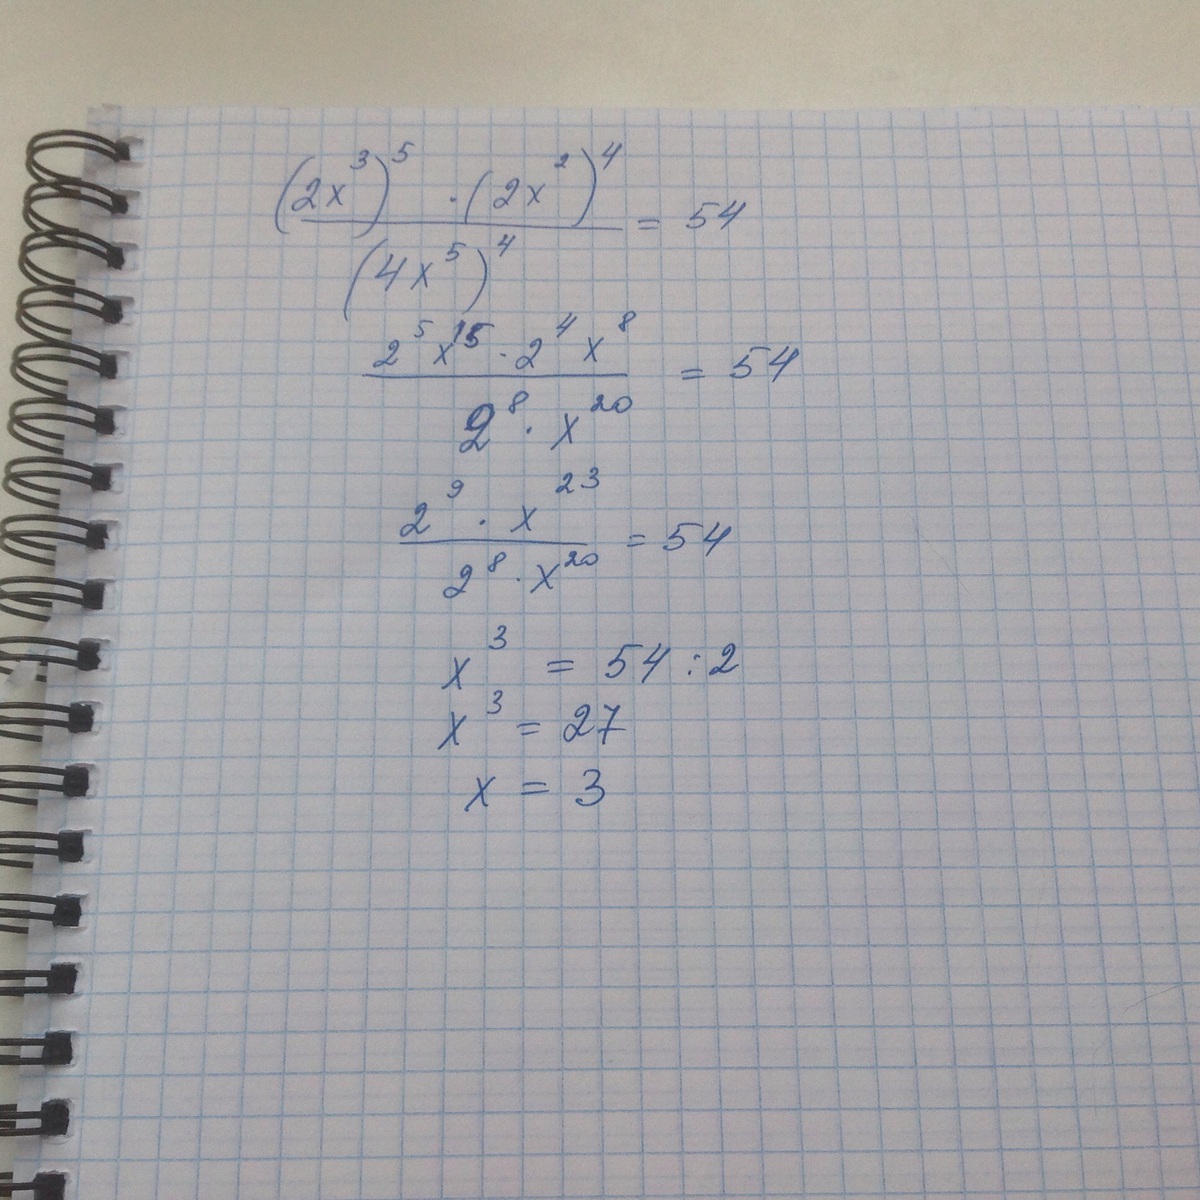 (2x³)⁵ · (2x²)⁴ / (4x⁵)⁴ = 54
2⁵x¹⁵ · 2⁴x⁸ / 2⁸ · x²⁰ = 54
2⁹ · x²³ / 2⁸ · x²⁰ = 54
x³ = 54 : 2
x³ = 27
x = 3